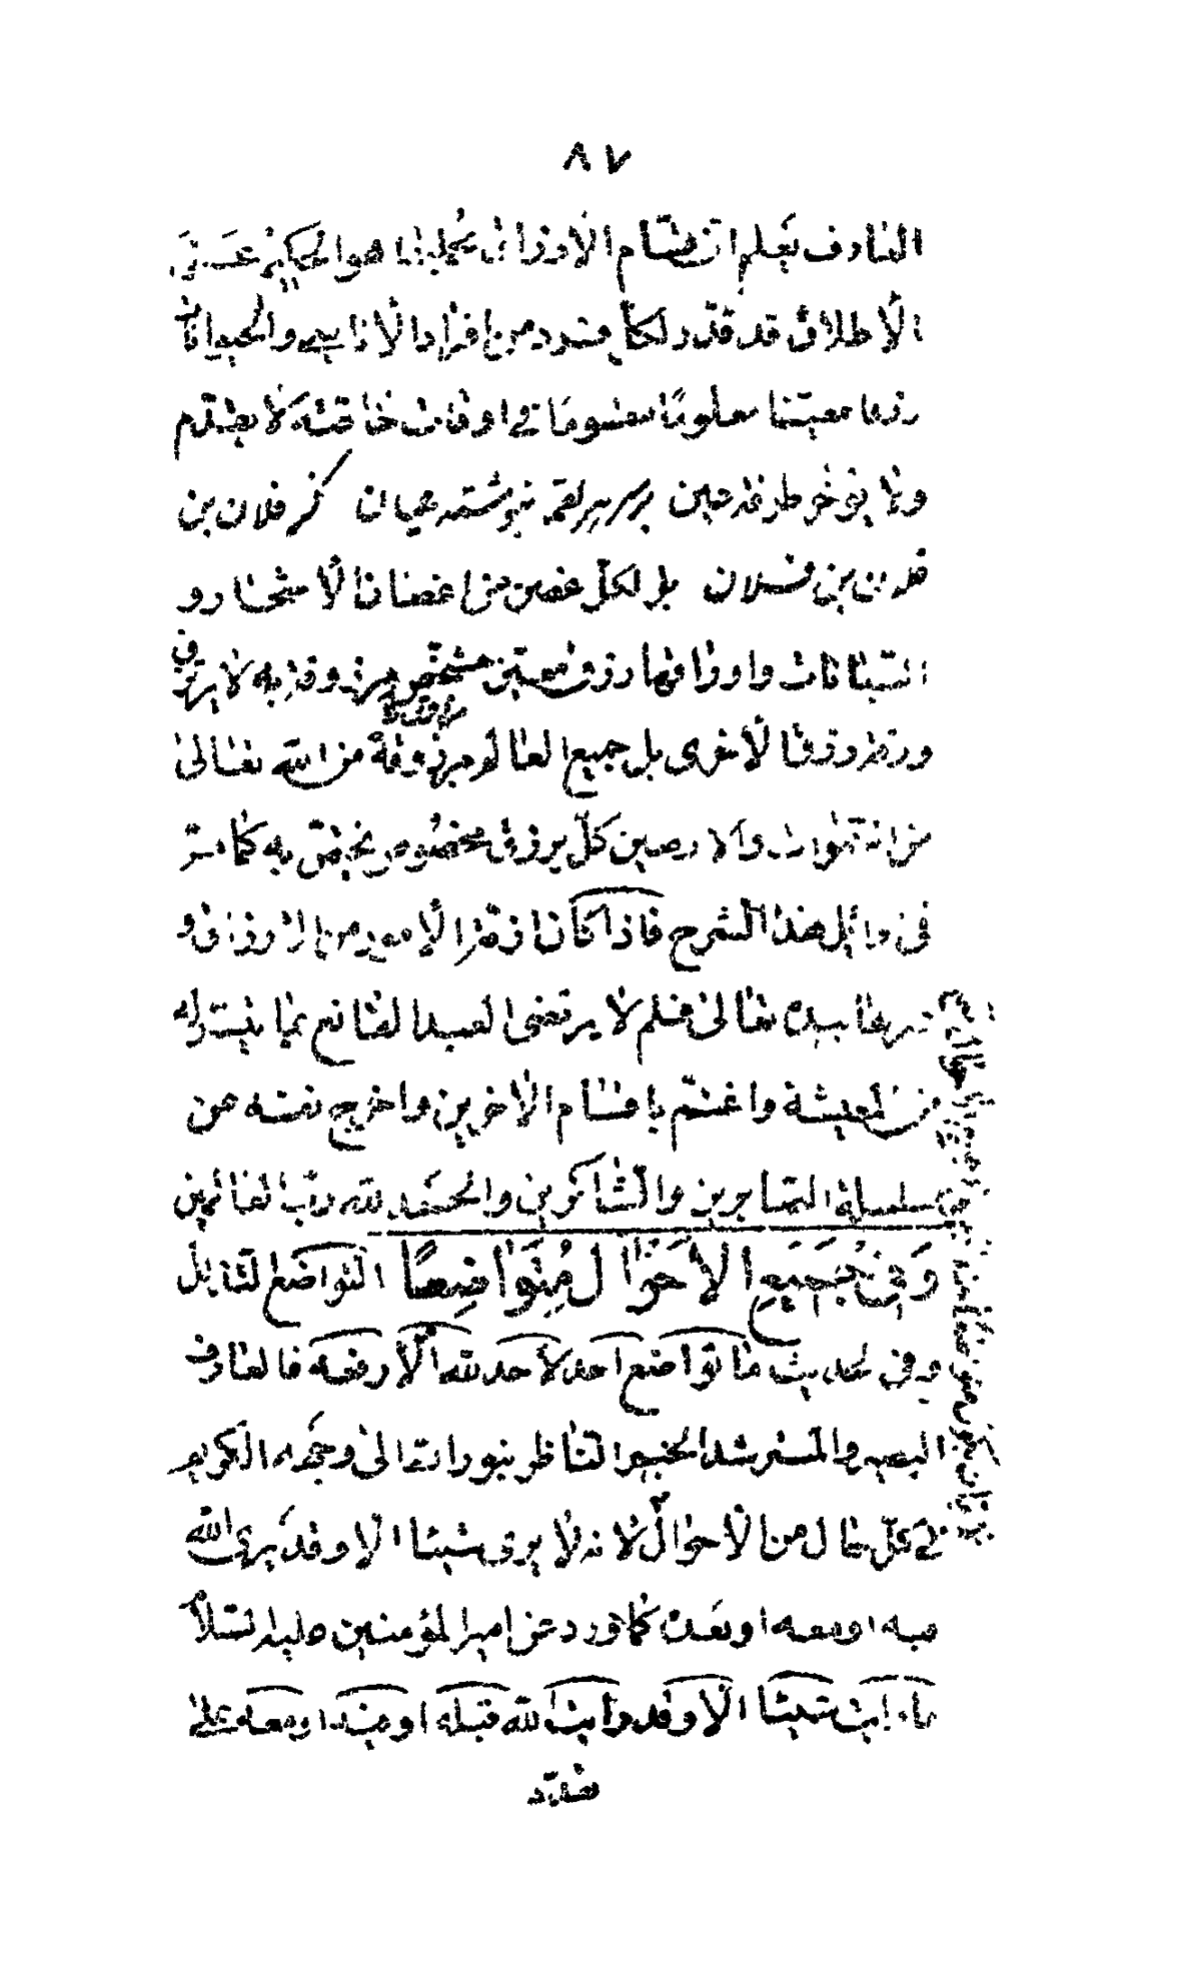 ٨٧
العارف يعلم ان قسام الارزاق هو الحكيم
الاطلاق قد قدّر لكل فرد من افراد الاناسي والحيوانات
رزقا معيّنا معلومًا مقسومًا في اوقات خاصّة لا يتقدم
ولا يتأخر طرفة عين بر سر هر لقمه بنوشته عيان كز فلان بن
فلان بن فلان بل لكلّ غصن من اغصان الاشجار و
النباتات واوراقها رزق معيّن مشخّص مرزوقة به لا يرتزق
ورقة رزق الاخرى بل جميع العالم مرزوقة من الله تعالى
من السموات والارضين كلّ برزق مخصوص يختصّ به كما مرّ
في اوائل هذا الشرح فاذا كان ازمّة الامور من الارزاق و
غيرها بيده تعالى فلم لا يرتضى العبد القانع بما يسّر له
من المعيشة واغتنم باقسام الاخرين واخرج نفسه من
سلسلة الصابرين والشاكرين والحمد لله ربّ العالمين
وَفي جَميعِ الاَحْوالِ مُتَواضِعًا التواضع التذلل
وفي الحديث ما تواضع احد لاحد لله الّا رفعه فالعارف
البصير والمسترشد الخبير الناظر بنور الله الى وجهه الكريم
في كلّ حال من الاحوال لانه لا يرى شيئا الا وقد يرى الله
فيه او معه او بعده كما ورد عن امير المؤمنين عليه السّلام
ما رايت شيئا الا وقد رايت الله قبله او فيه او معه على